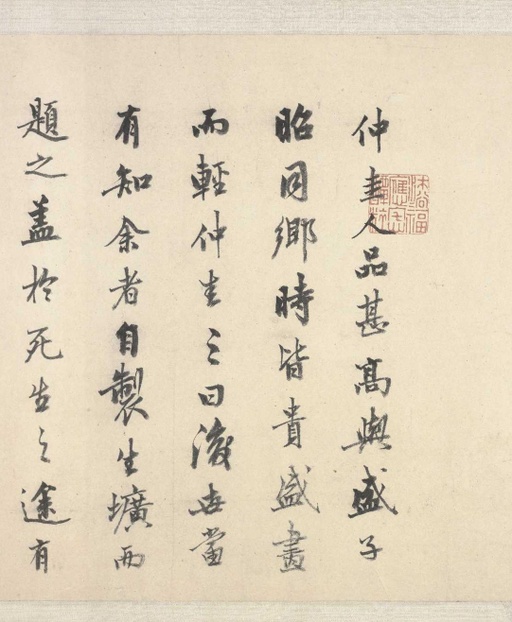 仲圭人品甚髙與盛子
昭同鄉時皆貴盛畫
而輕仲圭之曰後世當
有知余者自製生壙而
題之盖扵死生之途有